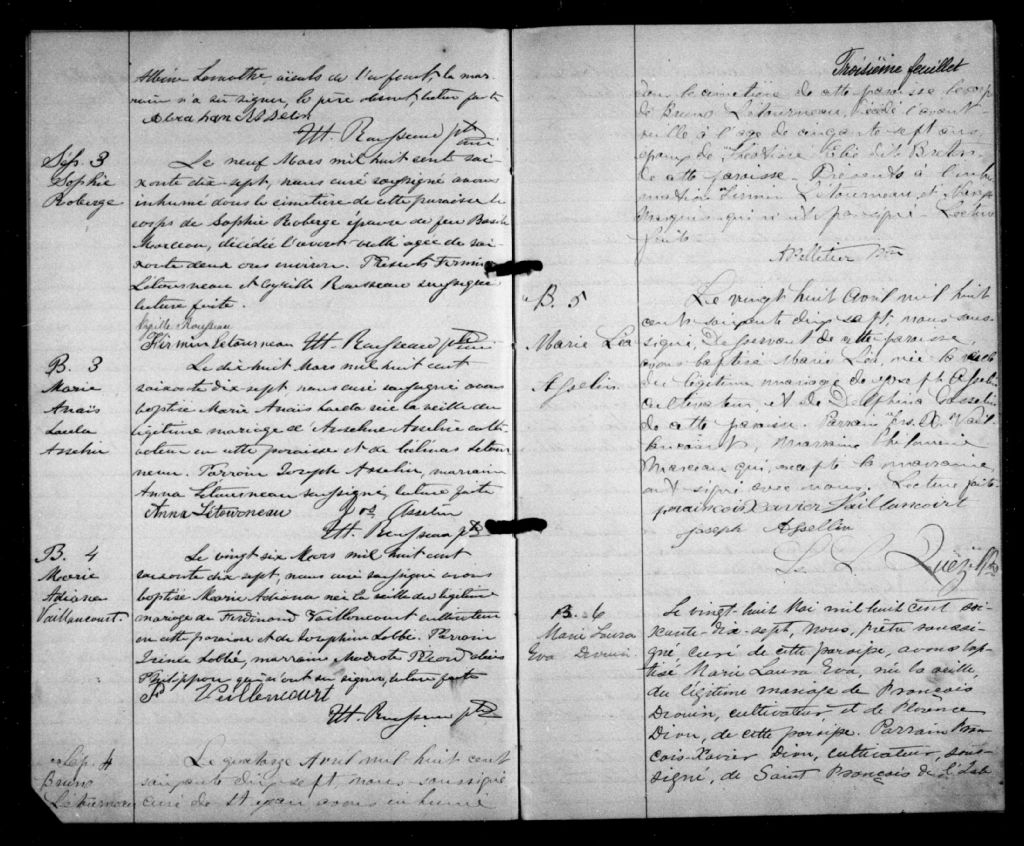 Albina Lamothe aïeuls de l'enfant, la mar-
raine n'a su signer, le père absent, lecture faite
Abraham Asselin
M. Rousseau ptre
curé
Sép. 3
Sophie
Roberge
Le neuf Mars mil huit cent soi-
xante dix-sept, nous curé soussigné avons
inhumé dans le cimetière de cette paroisse le
corps de Sophie Roberge épouse de feu
Marceau, décédée l'avant veille agée de soi-
xante deux ans environ. Présents Firmin
Létourneau et Cyrille Rousseau soussignés
lecture faite.
Cyrille Rousseau
Firmin Létourneau M. Rousseau ptre
B. 3
Marie
Anaïs
Asselin
Le dix huit Mars mil huit cent
soixante dix sept, nous curé soussigné avons
baptisé Marie Anaïs née la veille du
légitime mariage d'Anselme Asselin culti-
vateur en cette paroisse et de Létour-
neau. Parrain Joseph Asselin, marraine
Anna Létourneau soussignés, lecture faite
Anna Létourneau Jos Asselin
M. Rousseau ptre
B. 4
Marie
Adiana
Vaillancourt.
Le vingt six Mars mil huit cent
soixante dix sept, nous curé soussigné avons
baptisé Marie Adiana née la veille du légitime
mariage de Ferdinand Vaillancourt cultivateur
en cette paroisse et de Joséphine Labbé. Parrain
Irénée Labbé, marraine Modeste
Philippon qui n'ont su signer, lecture faite
F Vaillencourt
M. Rousseau ptre
Sép. 4
Bruno
Létourneau
Le quatorze Avril mil huit cent
soixante dix sept, nous soussigné
curé de St Jean avons inhumé
Troisième feuillet
dans le cimetière de cette paroisse le corps
de Bruno Létourneau, décédé l'avant
veille à l'age de cinquante sept ans,
époux de Elie dit Breton
de cette paroisse. Présents à l'inhu-
mation Firmin Létourneau et
qui n'ont Lecture
faite
A Pelletier Ptre
B. 5
Marie Lea
Asselin
Le vingt huit Avril mil huit
cent soixante dix sept, nous sous-
signé, Desservant de cette paroisse,
avons baptisé Marie Léa, née la
du légitime mariage de Joseph Asselin
cultivateur et de Delphina Asselin
de cette paroisse. Parrain Frs. X. Vail-
lancourt, Marraine Philomene
Marceau qui, excepté la marraine,
ont signé avec nous. Lecture faite
françois Xavier Vaillancourt
Joseph Assellin
B. 6
Marie Laura
Eva Drouin
Le vingt-huit Mai mil huit cent soi-
xante-dix-sept, Nous, prêtre soussi-
gné curé de cette paroisse, avons bap-
tisé Marie Laura Eva, née la veille,
du légitime mariage de François
Drouin, cultivateur, et de Florence
Dion, de cette paroisse. Parrain Fran-
çois-Xavier Dion, cultivateur, sous-
signé, de Saint François de l'Isle